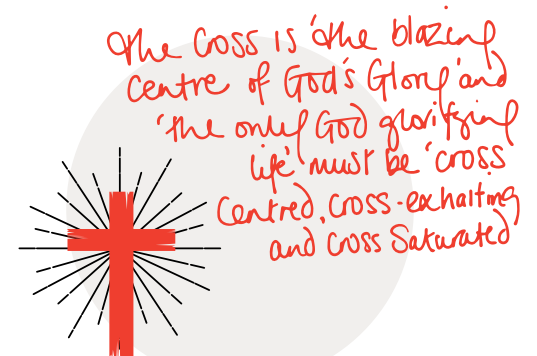 The Cross is 'the blazing
centre of God's Glory' and
'the only God glorifying
life' must be 'cross
Centred, cross-exhalting
and cross Saturated